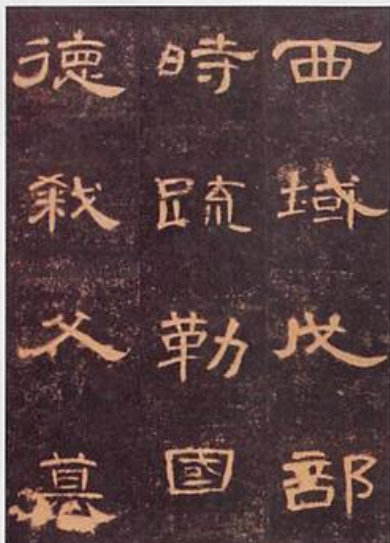 西域戊部
時疏勒國
德弒父篡